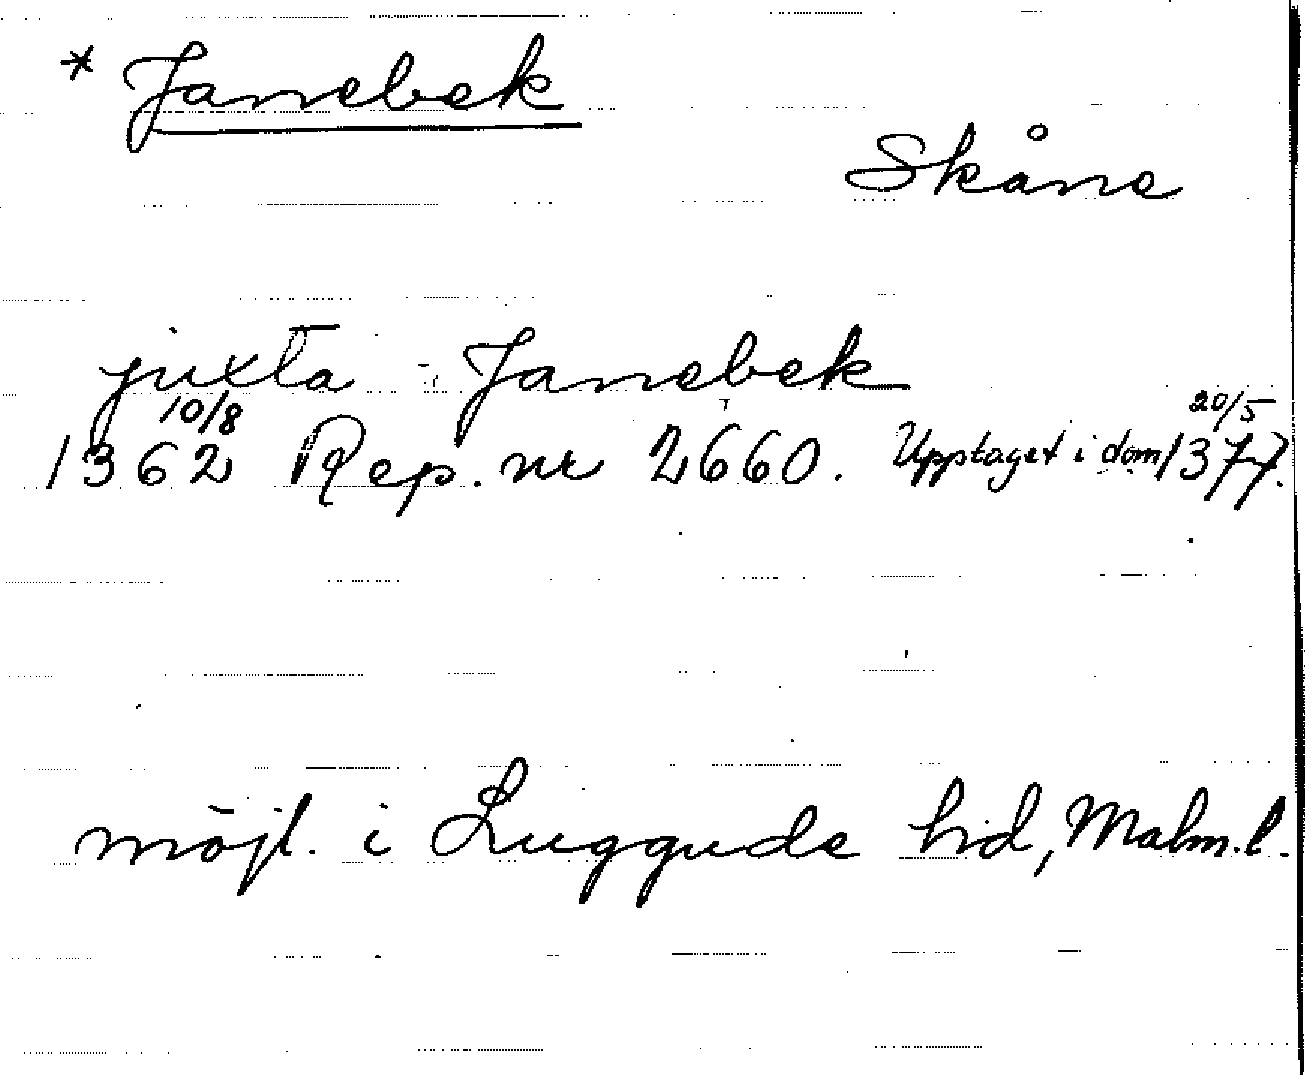 * Janebek
Skåne
juxta Janebek
10/8 20/5
1362 Rep. nr 2660. Upptaget i dom 1377.
möjl. i Luggude hd, Malm. l.